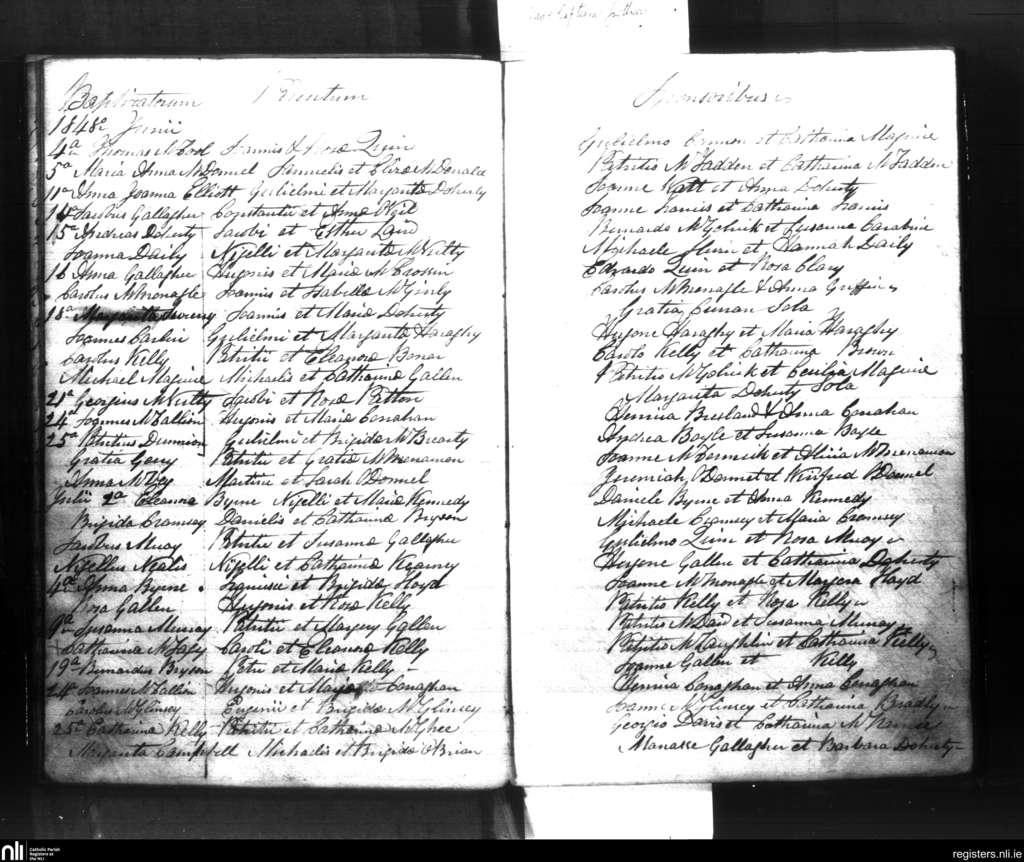 Baptizatorum Parentum
1848o Junii
4a Thomas McCool Joannis & Quin
5a Maria Anna McDonnel Samuelis et Eliza McDonald
11a Anna Joanna Elliott Gulielmi et Margarita Doherty
14 Jacobus Gallagher Constantii et Anna
15a Andreas Doherty Jacobi et Esther
Joanna Daily Nigelli et Margarita McNulty
16 Anna Gallagher Hugonis et Maria McCrossin
Carolus McMonagle Joannis et Isabella McGinly
18a Margarita Joannis et Maria Doherty
Joannes Carlin Gulielmi et Margarita Haraghy
Carolus Kelly Patritii et Eleanora Bonar
Michael Maguire Michaelis et Catharina Gallen
21a Georgius McNulty Jacobi et Rosa Patton
24a Joannes McCallion Hugonis et Maria Conahan
25a Patritius Dunnion Gulielmi et Brigida McBrearty
Gratia Gorry Patritii et Gratia McMenamon
Anna McVey Martini et Sarah O'Donnel
Julii 2a Eleanora Byrne Nigelli et Maria Kennedy
Brigida Cramsey Danielis et Catharina Bryson
Jacobus Murry Patritii et Susanna Gallagher
Nigellus Nigelli et Catharina Kearney
4a Anna Byrne Francisci et Brigida Floyd
Rosa Gallen Hugonis et Rosa Kelly
9a Susanna Murray Patritii et Margery Gallen
Catharina Caroli et Eleanora Kelly
19a Bernardus Bryson Petri et Maria Kelly
24 Joannes McCallin Hugonis et Conaghan
Carolus McGlinsey Eugenii et Brigida McGlinsey
25a Catharina Kelly Patritii et Catharina McGhee
Margarita Campbell Michaelis et Brigida O'Brian
Sponsoribus
Gulielmo Cannon et Catharina Maguire
Patritio McFadden et Catharina McFadden
Joanne Watt et Anna Doherty
Joanne et Catharina
Bernardo et Susanna Carabine
Michaele et Hannah Daily
Edvardo Quin et Rosa Clary
Carolus McMonagle & Anna Griffin
Gratia Curran Sola
Hugone Haraghy et Maria Haraghy
Carolo Kelly et Catharina Brown
Patritio McGolrick et Cecilia Maguire
Margarita Doherty Sola
Breeland & Anna Conahan
Andrea Boyle et Susanna Boyle
Joanne McCormick et Alicia McMenamon
Jeremiah O'Donnel et Winifred O'Donnel
Daniele Byrne et Anna Kennedy
Michaele Cramsey et Maria Cramsey
Gulielmo Quin et Rosa Murry
Hugone Gallen et Catharina Doherty
Joanne McMonagle et Margera Floyd
Patritio Kelly et Rosa Kelly
Patritio McDaid et Susanna Murray
Patritio McLaughlin et Catharina Kelly
Joanne Gallen et Kelly
Conaghan et Anna Conaghan
Joanne McGlinsey et Catharina Bradly
Georgio Davis et Catharina
Manasse Gallagher et Barbara Doherty
nli Catholic Parish
Registers at
the NLI
registers.nli.ie